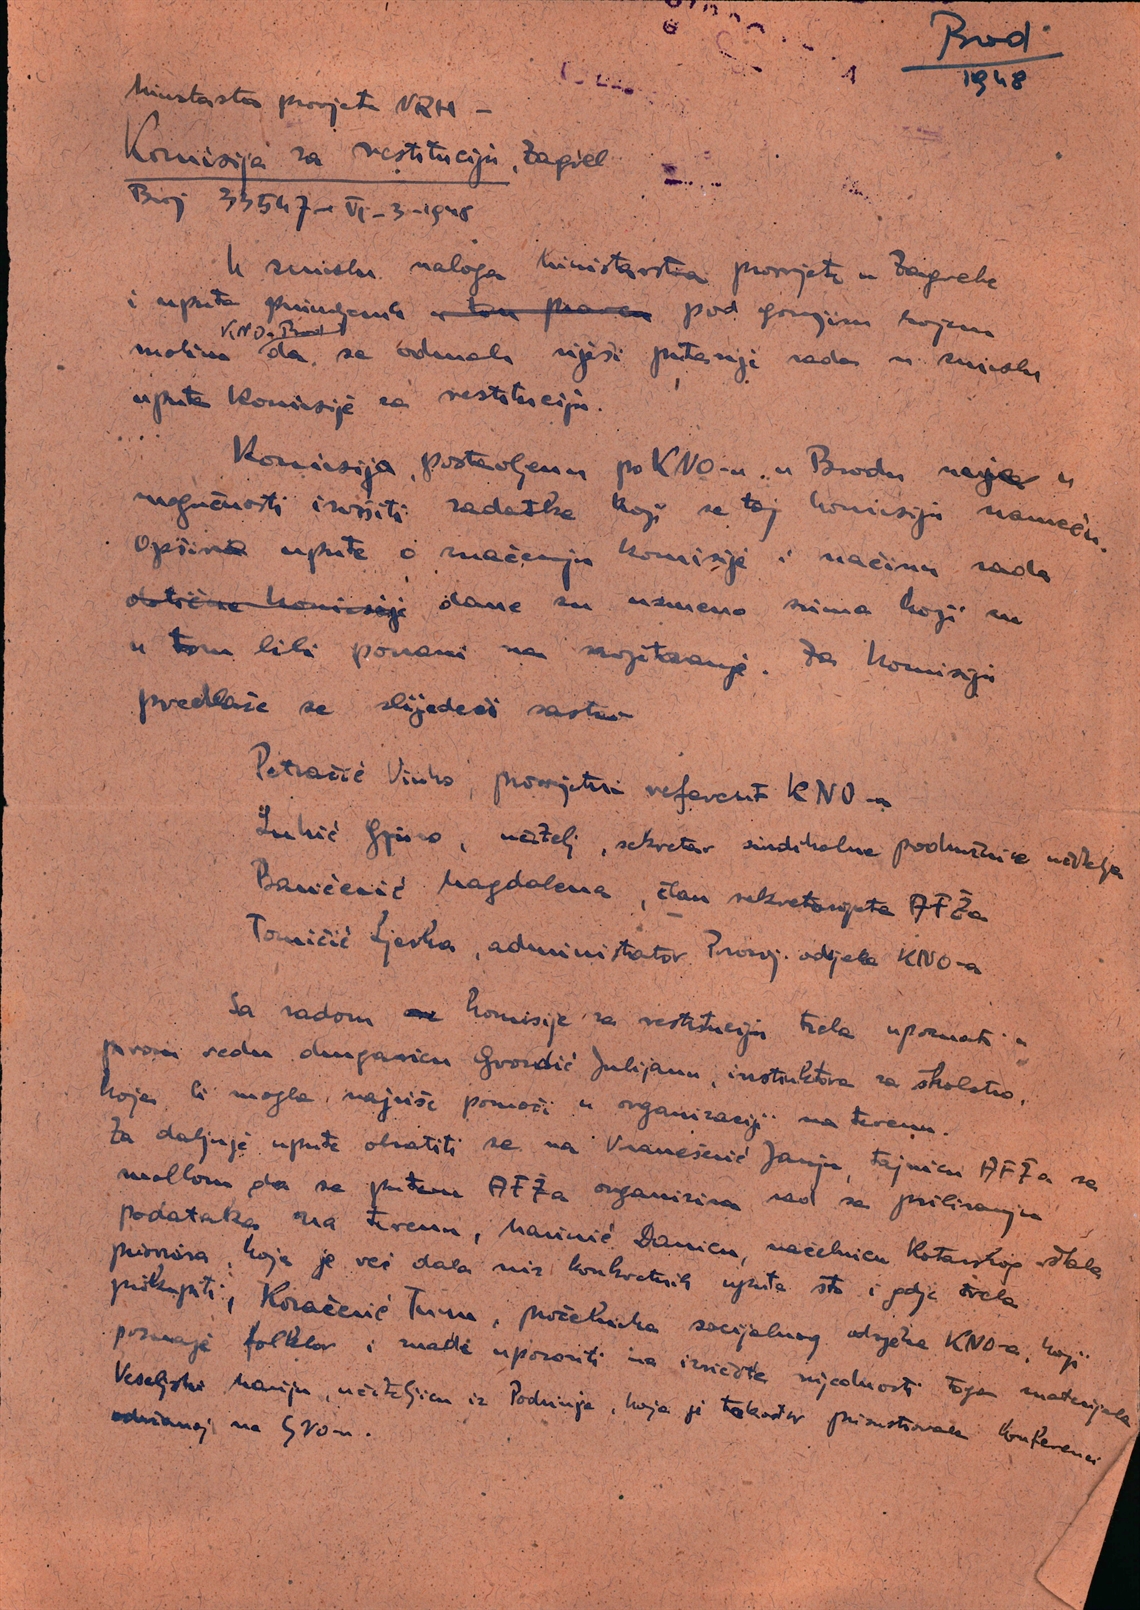 Brod
1948
Ministarstvo prosvjete NRH –
Komisija za restituciju, Zagreb
Broj 33547 – VI – 3 – 1948
U smislu naloga Ministarstva prosvjete u Zagrebu
i uputa primljenih u tom pravcu pod gornjim brojem
KNO-Brod
molim da se odmah riješi pitanje rada u smislu
uputa Komisije za restituciju.
Komisija, postavljena po KNO-u u Brodu nije u
mogućnosti izvršiti zadatke koji se toj komisiji nameću.
Opširne upute o značenju komisije i načinu rada
dotične komisije dane su usmeno svima koji su
u tom bili pozvani na savjetovanje. Za Komisiju
predlaže se slijedeći sastav
Petračić Vinko, prosvjetni referent KNO-a
Lukić Gjuro, učitelj, sekretar sindikalne podružnice učitelja
Baničević Magdalena, član sekretarijata AFŽa
Tomičić Ljerka, administrator Prosvj. odjela KNO-a
Sa radom komisije za restituciju treba upoznati u
prvom redu drugaricu Gvozdić Julijanu, instruktora za školstvo,
koja bi mogla najviše pomoći u organizaciji na terenu.
Za daljnje upute obratiti se na Vranešević Janju, tajnicu AFŽa sa
molbom da se putem AFŽa organizira rad sa prikupljanjem
podataka na terenu, Marinić Danicu, načelnicu Kotarskog štaba
pionira, koja je već dala niz konkretnih uputa što i gdje treba
prikupiti, Kovačević Tunu, pročelnika socijalnog odjela KNO-a, koji
poznaje folklor i može upozoriti na izvjesne vrijednosti toga materijala
Veseljski Mariju, učiteljicu iz Podvinja, koja je također prisustvovala konferenci
održanoj na GNO-u.